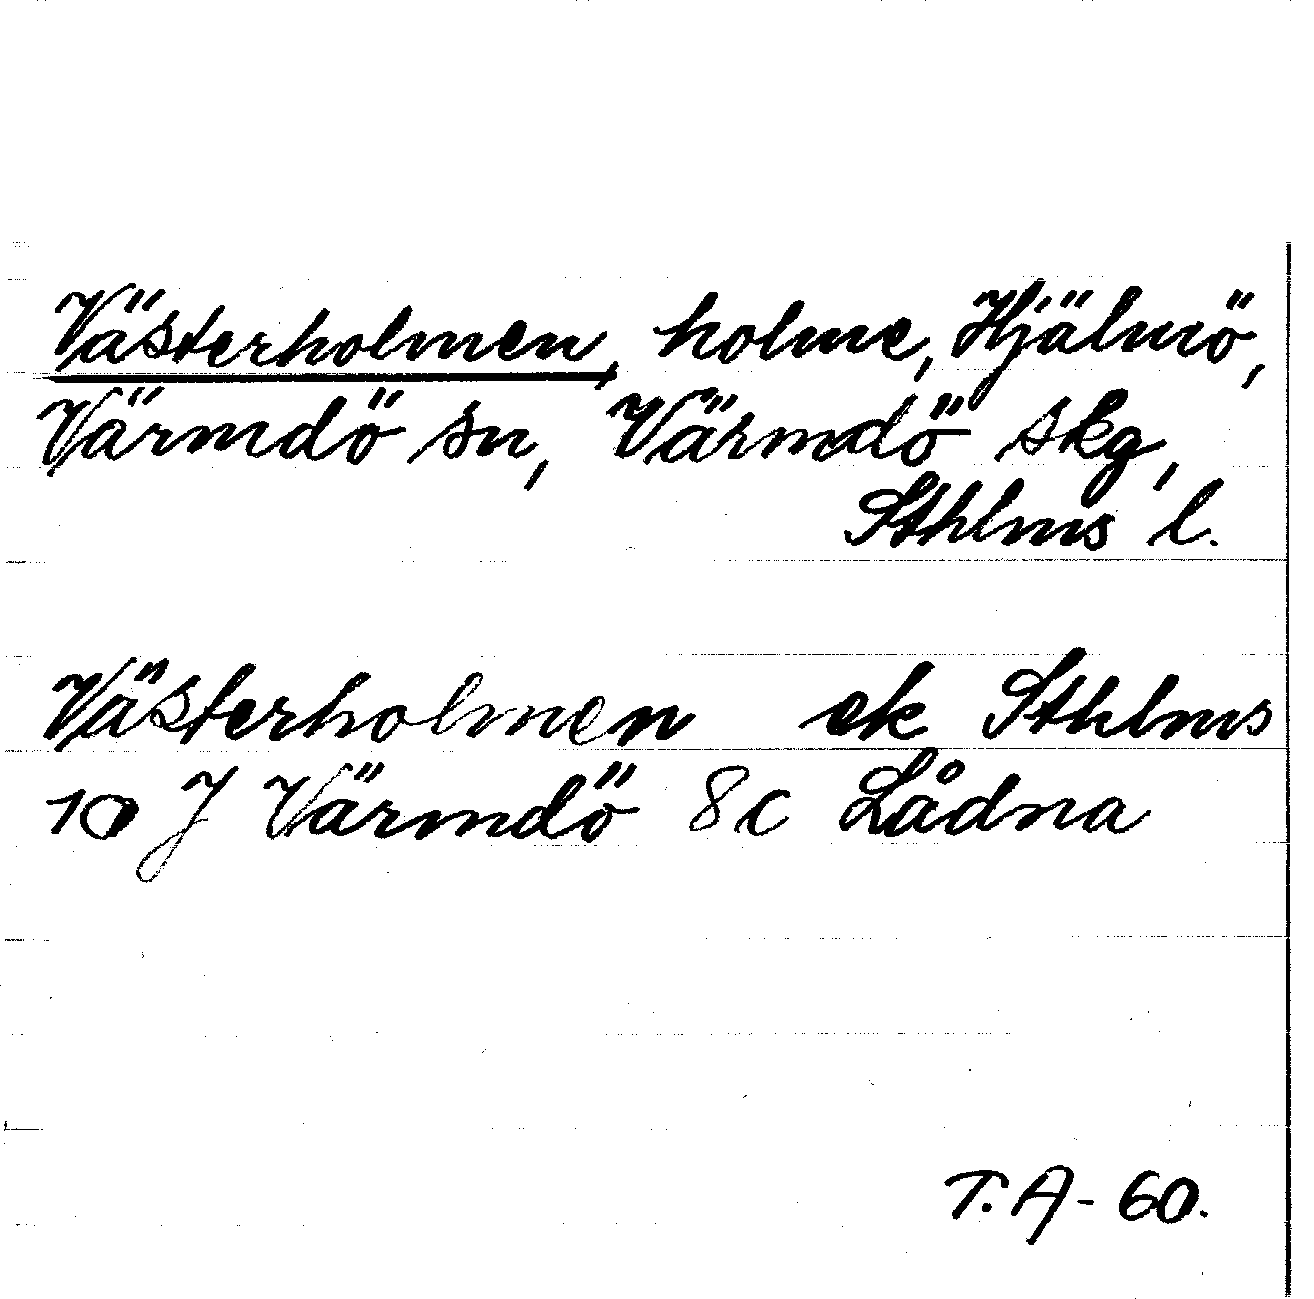 Västerholmen, holme, Hjälmö,
Värmdö sn, Värmdö skg,
Sthlms l.
Västerholmen ek Sthlms
10 J Värmdö 8c Lådna
T.A-60.